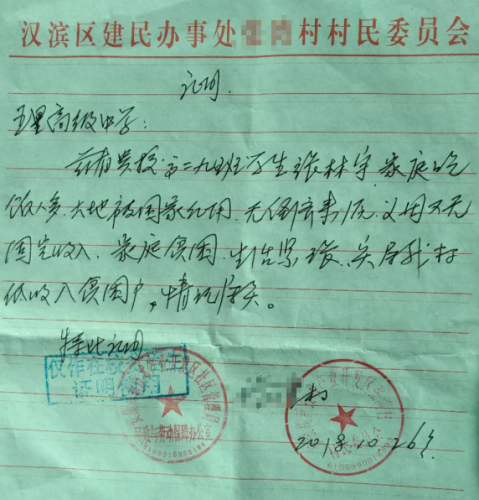 汉滨区建民办事处 村村民委员会
证明
五星高级中学:
兹有贵校高二九班学生张林宇,家庭吃
饭人多,土地被国家征用,无 来源,父母又无
固定收入,家庭贫困,生活紧张,实属我村
低收入贫困户,情况属实。
特此证明
仅作
证明使用
村
2018.10.26号